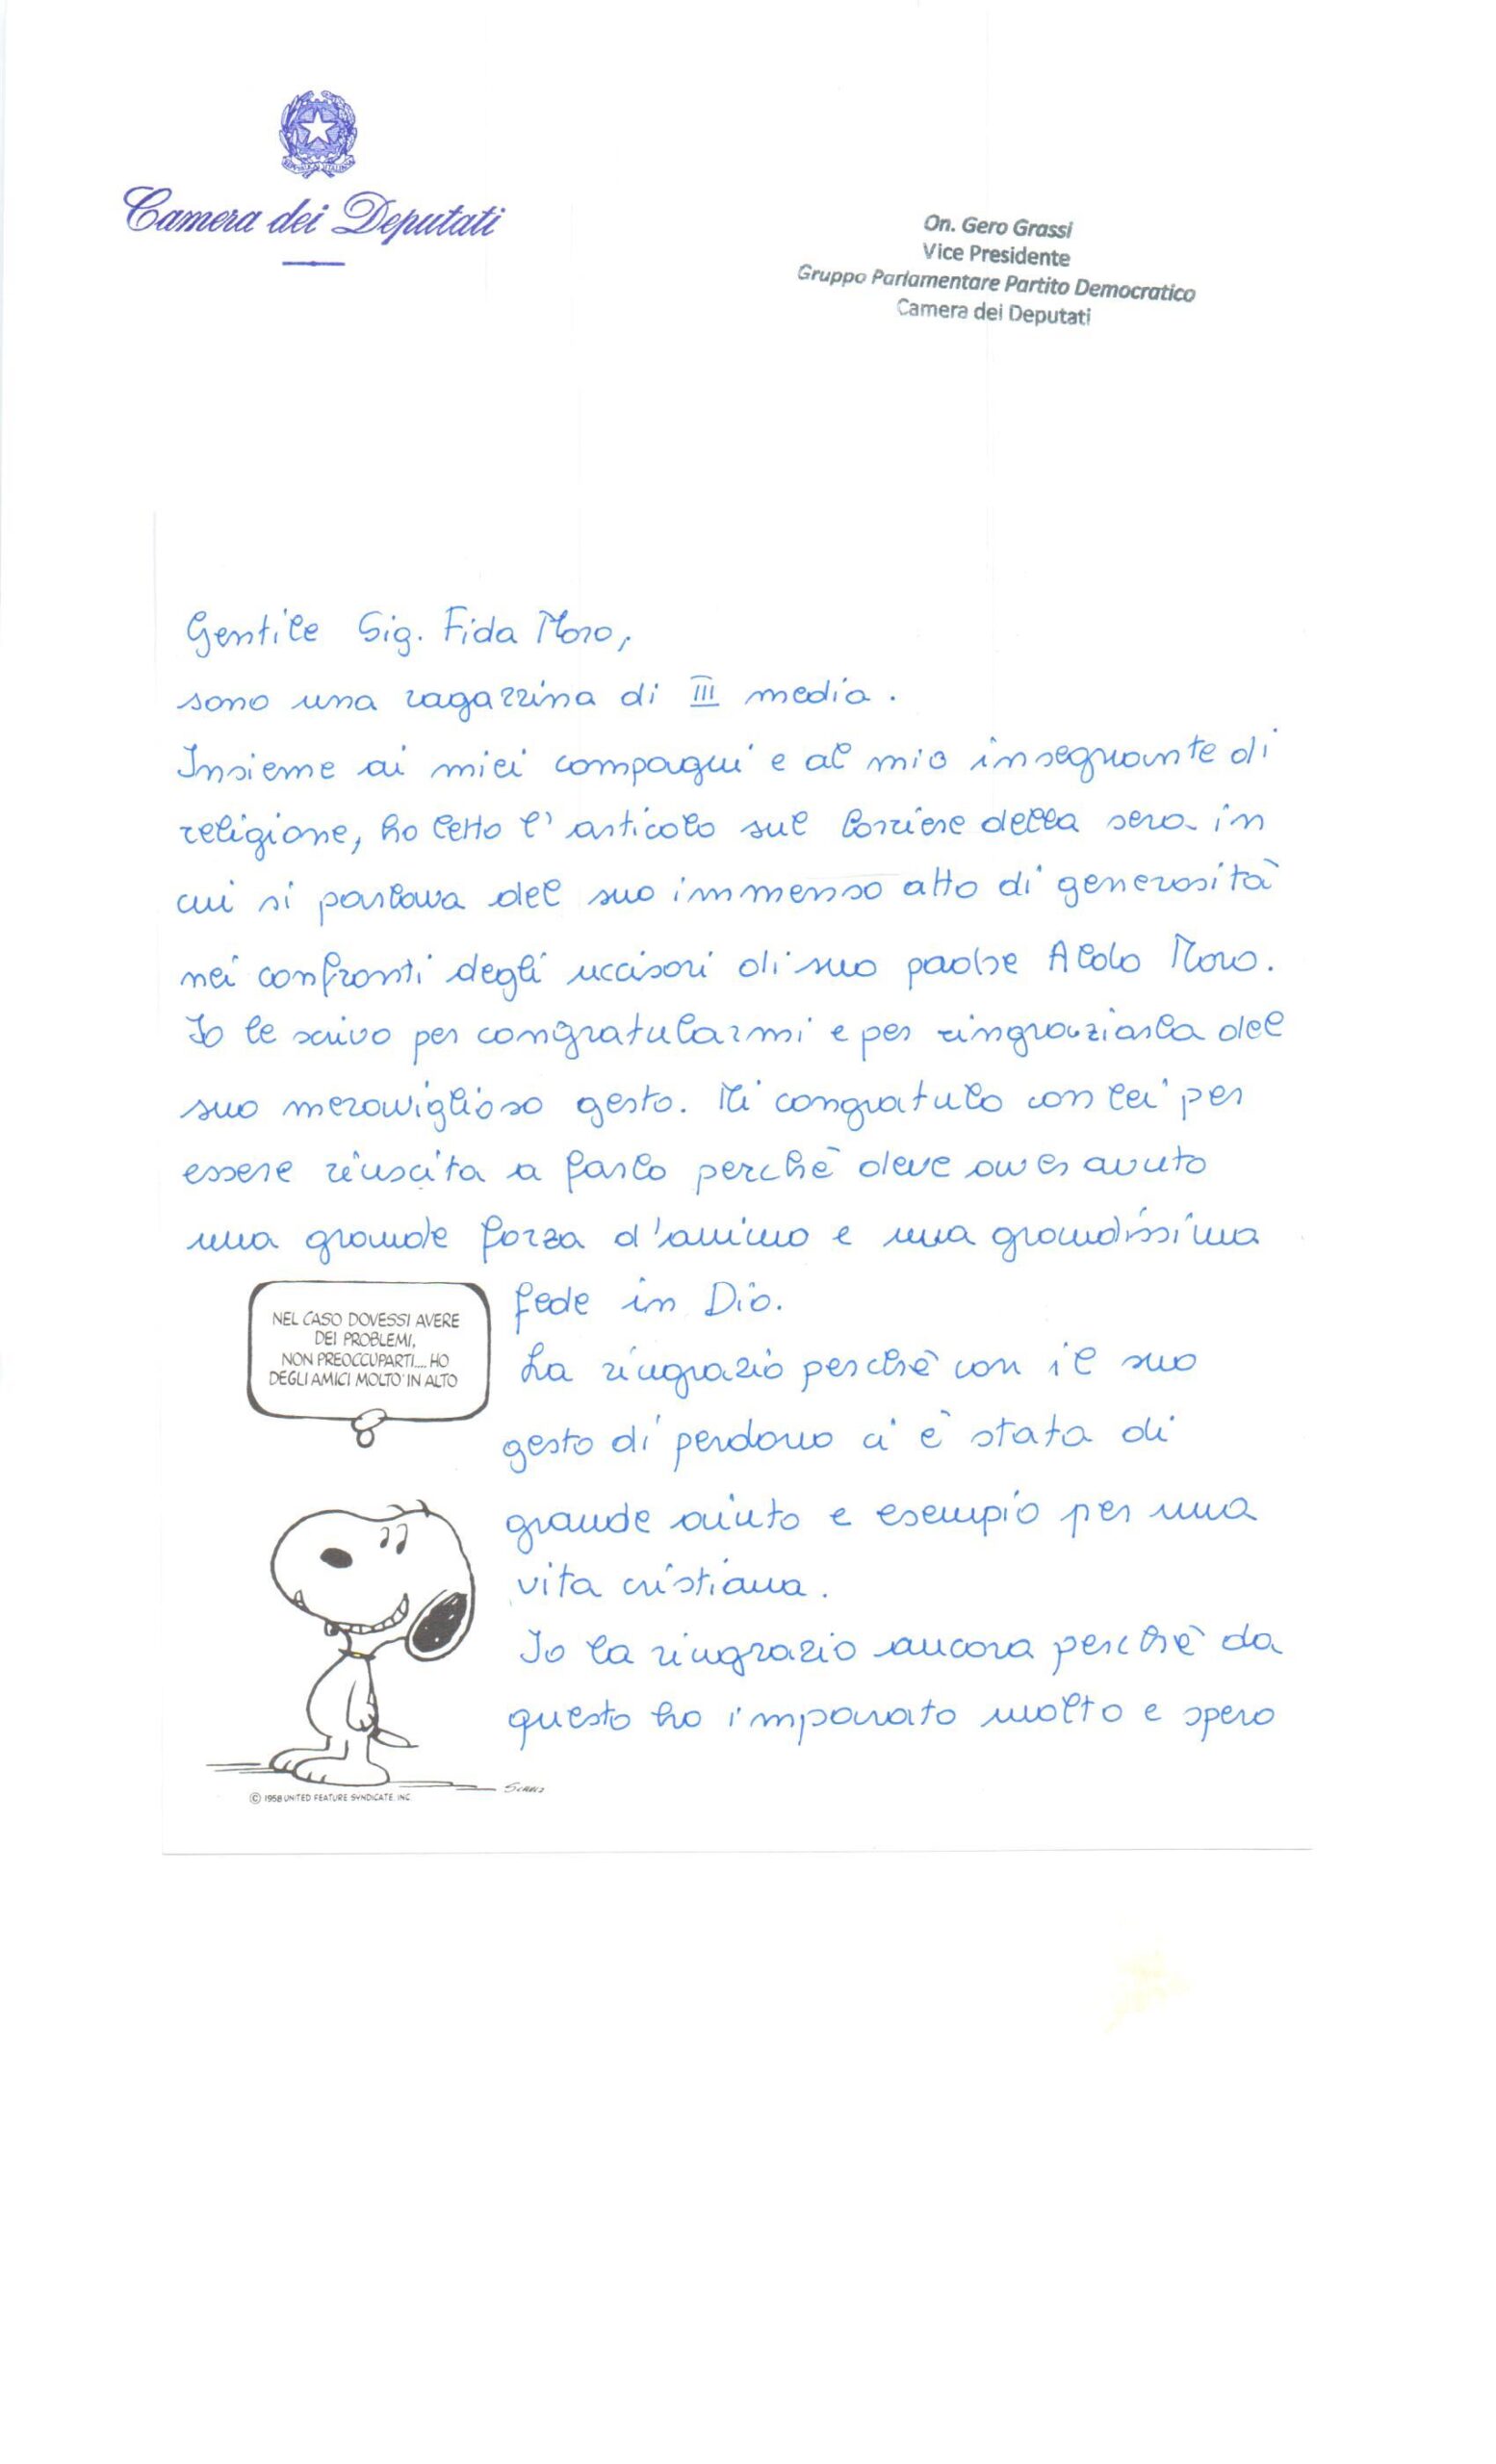 REPVBBLICA ITALIANA
Camera dei Deputati
On. Gero Grassi
Vice Presidente
Gruppo Parlamentare Partito Democratico
Camera dei Deputati
Gentile Sig. Fida Moro,
sono una ragazzina di III media.
Insieme ai miei compagni e al mio insegnante di
religione, ho letto l'articolo sul Corriere della sera in
cui si parlava del suo immenso atto di generosità
nei confronti degli uccisori di suo padre Aldo Moro.
Io le scrivo per congratularmi e per ringraziarla del
suo meraviglioso gesto. Mi congratulo con lei per
essere riuscita a farlo perchè deve aver avuto
una grande forza d'animo e una grandissima
fede in Dio.
La ringrazio perchè con il suo
gesto di perdono ci è stata di
grande aiuto e esempio per una
vita cristiana.
Io la ringrazio ancora perchè da
questo ho imparato molto e spero
NEL CASO DOVESSI AVERE
DEI PROBLEMI,
NON PREOCCUPARTI.... HO
DEGLI AMICI MOLTO IN ALTO
SCHULZ
© 1958 UNITED FEATURE SYNDICATE, INC.